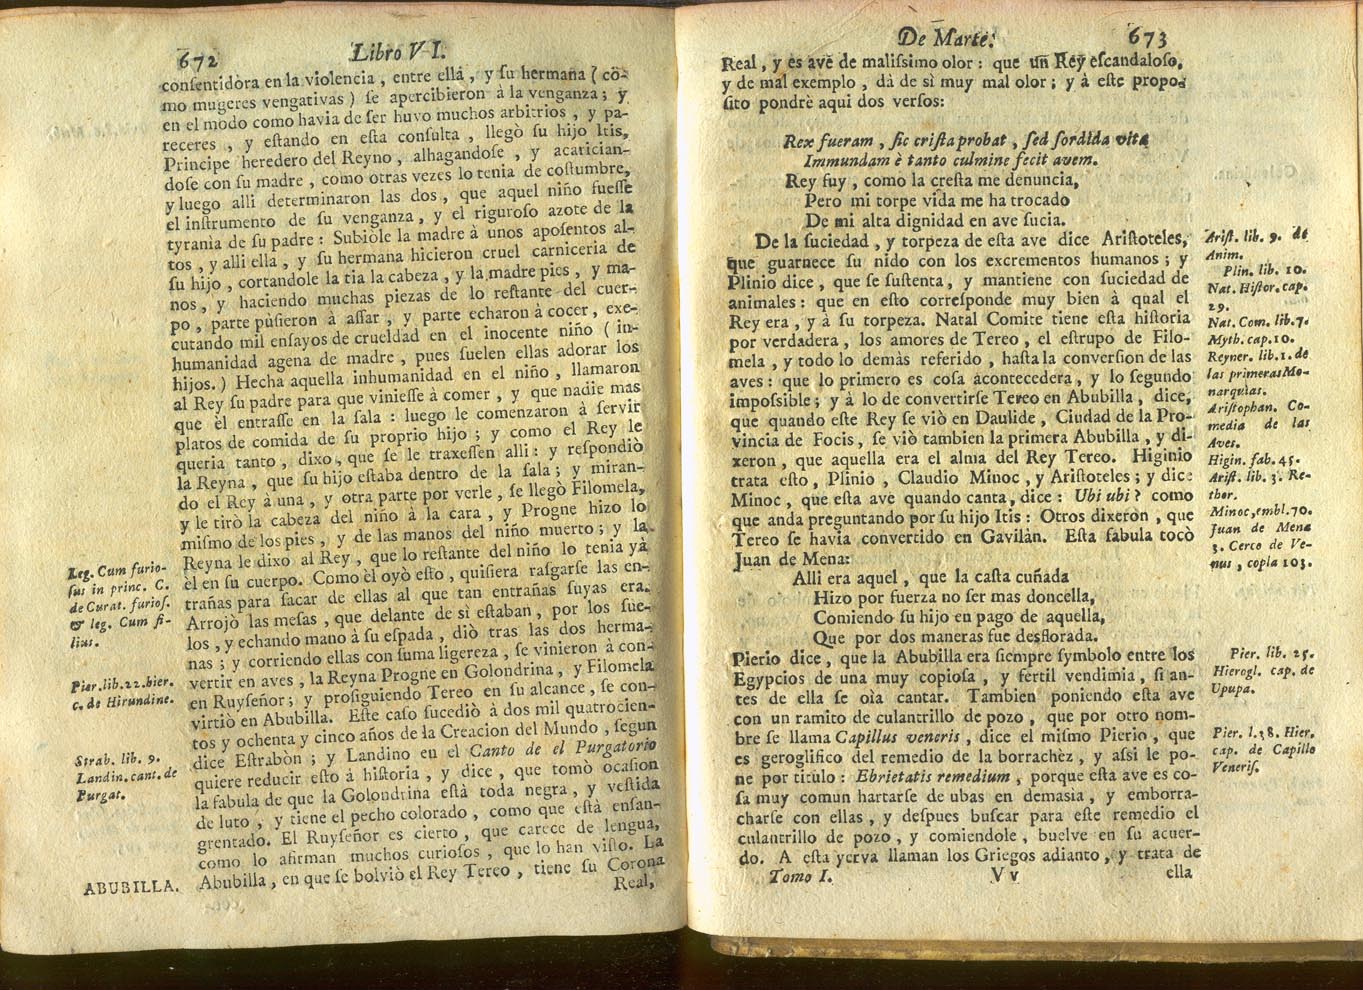 672
Libro VI.
consentidora en la violencia, entre ella, y su hermana (co-
mo mugeres vengativas) se apercibieron à la venganza; y
en el modo como havia de ser huvo muchos arbitrios, y pa-
receres, y estando en esta consulta, llegò su hijo Itis,
Principe heredero del Reyno, alhagandose, y acarician-
dose con su madre, como otras vezes lo tenia de costumbre,
y luego alli determinaron las dos, que aquel niño fuesse
el instrumento de su venganza, y el riguroso azote de la
tyrania de su padre: Subiòle la madre à unos aposentos al-
tos, y alli ella, y su hermana hicieron cruel carniceria de
su hijo, cortandole la tia la cabeza, y la madre pies, y ma-
nos, y haciendo muchas piezas de lo restante del cuer-
po, parte pusieron à assar, y parte echaron à cocer, exe-
cutando mil ensayos de crueldad en el inocente niño (in-
humanidad agena de madre, pues suelen ellas adorar los
hijos.) Hecha aquella inhumanidad en el niño, llamaron
al Rey su padre para que viniesse à comer, y que nadie mas
que èl entrasse en la sala: luego le comenzaron à servir
platos de comida de su proprio hijo; y como el Rey le
queria tanto, dixo, que se le traxessen alli: y respondiò
la Reyna, que su hijo estaba dentro de la sala; y miran-
do el Rey à una, y otra parte por verle, se llegò Filomela,
y le tirò la cabeza del niño à la cara, y Progne hizo lo
mismo de los pies, y de las manos del niño muerto; y la
Reyna le dixo al Rey, que lo restante del niño lo tenia yà
èl en su cuerpo. Como èl oyò esto, quisiera rasgarse las en-
trañas para sacar de ellas al que tan entrañas suyas era.
Arrojò las mesas, que delante de sì estaban, por los sue-
los, y echando mano à su espada, diò tras las dos herma-
nas; y corriendo ellas con suma ligereza, se vinieron à con-
vertir en aves, la Reyna Progne en Golondrina, y Filomela
en Ruyseñor; y prosiguiendo Tereo en su alcance, se con-
virtiò en Abubilla. Este caso sucediò à dos mil quatrocien-
tos y ochenta y cinco años de la Creacion del Mundo, segun
dice Estrabòn; y Landino en el Canto de el Purgatorio
quiere reducir esto à historia, y dice, que tomò ocasion
la fabula de que la Golondrina està toda negra, y vestida
de luto, y tiene el pecho colorado, como que està ensan-
grentado. El Ruyseñor es cierto, que carece de lengua,
como lo afirman muchos curiosos, que lo han visto. La
Abubilla, en que se bolviò el Rey Tereo, tiene su Corona
Real,
Leg. Cum furio-
sus in princ. C.
de Curat. furios.
& leg. Cum fi-
lius.
Pier. lib. 22. hier.
c. de Hirundine.
Strab. lib. 9.
Landin. cant. de
Purgat.
ABUBILLA.
De Marte.
673
Real, y es ave de malissimo olor: que un Rey escandaloso,
y de mal exemplo, dà de sì muy mal olor; y à este propo-
sito pondrè aqui dos versos:
Rex fueram, sic crista probat, sed sordida vita
Immundam è tanto culmine fecit avem.
Rey fuy, como la cresta me denuncia,
Pero mi torpe vida me ha trocado
De mi alta dignidad en ave sucia.
De la suciedad, y torpeza de esta ave dice Aristoteles,
que guarnece su nido con los excrementos humanos; y
Plinio dice, que se sustenta, y mantiene con suciedad de
animales: que en esto corresponde muy bien à qual el
Rey era, y à su torpeza. Natal Comite tiene esta historia
por verdadera, los amores de Tereo, el estrupo de Filo-
mela, y todo lo demàs referido, hasta la conversion de las
aves: que lo primero es cosa acontecedera, y lo segundo
impossible; y à lo de convertirse Tereo en Abubilla, dice,
que quando este Rey se viò en Daulide, Ciudad de la Pro-
vincia de Focis, se viò tambien la primera Abubilla, y di-
xeron, que aquella era el alma del Rey Tereo. Higinio
trata esto, Plinio, Claudio Minoc, y Aristoteles; y dice
Minoc, que esta ave quando canta, dice: Ubi ubi? como
que anda preguntando por su hijo Itis: Otros dixeron, que
Tereo se havia convertido en Gavilàn. Esta fabula tocò
Juan de Mena:
Alli era aquel, que la casta cuñada
Hizo por fuerza no ser mas doncella,
Comiendo su hijo en pago de aquella,
Que por dos maneras fue desflorada.
Pierio dice, que la Abubilla era siempre symbolo entre los
Egypcios de una muy copiosa, y fertil vendimia, si an-
tes de ella se oìa cantar. Tambien poniendo esta ave
con un ramito de culantrillo de pozo, que por otro nom-
bre se llama Capillus veneris, dice el mismo Pierio, que
es geroglifico del remedio de la borrachèz, y assi le po-
ne por titulo: Ebrietatis remedium, porque esta ave es co-
sa muy comun hartarse de ubas en demasia, y emborra-
charse con ellas, y despues buscar para este remedio el
culantrillo de pozo, y comiendole, buelve en su acuer-
do. A esta yerva llaman los Griegos adianto, y trata de
Tomo I.
Vv
ella
Arist. lib. 9. de
Anim.
Plin. lib. 10.
Nat. Histor. cap.
29.
Nat. Com. lib. 7.
Myth. cap. 10.
Reyner. lib. 1. de
las primeras Mo-
narquias.
Aristophan. Co-
media de las
Aves.
Higin. fab. 45.
Arist. lib. 3. Re-
thor.
Minoc, embl. 70.
Juan de Mena
3. Cerco de Ve-
nus, copla 103.
Pier. lib. 25.
Hierogl. cap. de
Upupa.
Pier. l. 58. Hier.
cap. de Capillo
Veneris.